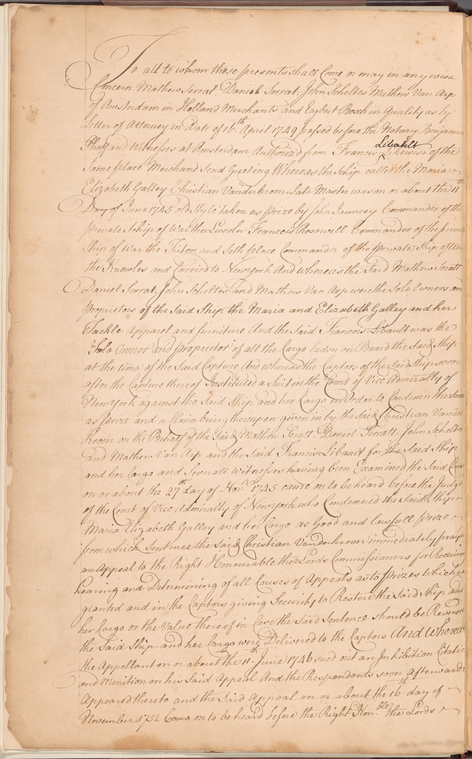 To all to whom these presents shall Come or may in any wise
Concern Mathew Serrat Daniel Serrat, John Scholten Mathew Van Arp
of Amsterdam in Holland Merchants and Egbert in Quality as by
letter of Attorney in Date of 16th April 1749 passed before the Notary Benjamin
and Witnesses at Amsterdam Authorized from Francis Libault of the
same place Merchant Send Greeting Whereas the Ship called the Maria
Elizabeth Galley Christian Vanderkroon late Master was on or about the 11th
Day of June 1745 old Stile taken as prize by John Jauncey Commander of the
private Ship of War the Lincoln Francois Rosewell Commander of the private
Ship of War the Triton and Seth place Commander of the private Ship of War
the Knowles and Carried to New York And whereas the Said Mathew Serratt
Daniel Serrat, John Scholten and Mathew Van Arp were the Sole Owners and
proprietors of the Said Ship the Maria and Elizabeth Galley and her
Tackle Apparel and furniture And the Said Francois Libault was the
Sole Owner and proprietor of all the Cargo laden on Board the Said Ship
at the time of the Said Capture And whereas the Captors of the Said Ship soon
after the Capture thereof Instituted a Suit in the Court of Vice Admiralty of
New York against the Said Ship and her Cargo in Order to Condemn the Same
as prize and a Claim being thereupon given in by the Said Christian Vander
kroon on the Behalf of the Said Mathew Serratt, Daniel Serratt, John Scholten
and Mathew Van Arp and the Said Francois Libault for the Said Ship
and her Cargo and Several Witnesses having been Examined the Said Cause
on or about the 27th day of Novr 1745 came on to be heard before the Judge
of the Court of Vice Admiralty of New York who Condemned the Said Ship
Maria Elizabeth Galley and her Cargo as Good and lawfull prize
from which Sentence the Said Christian Vanderkroon immediately prayed
an Appeal to the Right Honourable the Lords Commissioners for Receiving
hearing and Determining of all Causes of Appeals as to prizes which was
granted and in the Captors giving Security to Restore the Said Ship and
her Cargo or the Value thereof in Case the Said Sentence should be Reversed
the Said Ship and her Cargo were Delivered to the Captors And whereas
the Appellant on or about the 11th June 1746 sued out an Inhibition Citation
and Monition on his Said Appeal And the Respondents soon afterwards
Appeared thereto and the Said Appeal on or about the 16th day of
November 1752 Came on to be heard before the Right Honble the Lords